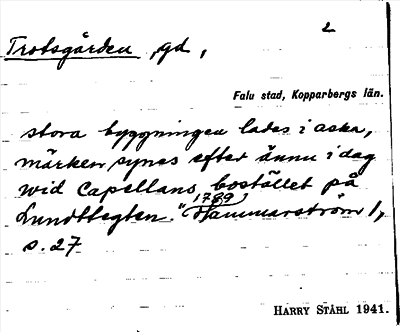 2
Trotsgården, gd,
Falu stad, Kopparbergs län.
stora byggningen lades i aska,
märken synes efter ännu i dag
wid Capellans bostället på
Lundtlegten." Hammarström 1,
1789
s. 27
HARRY STÅHL 1941.